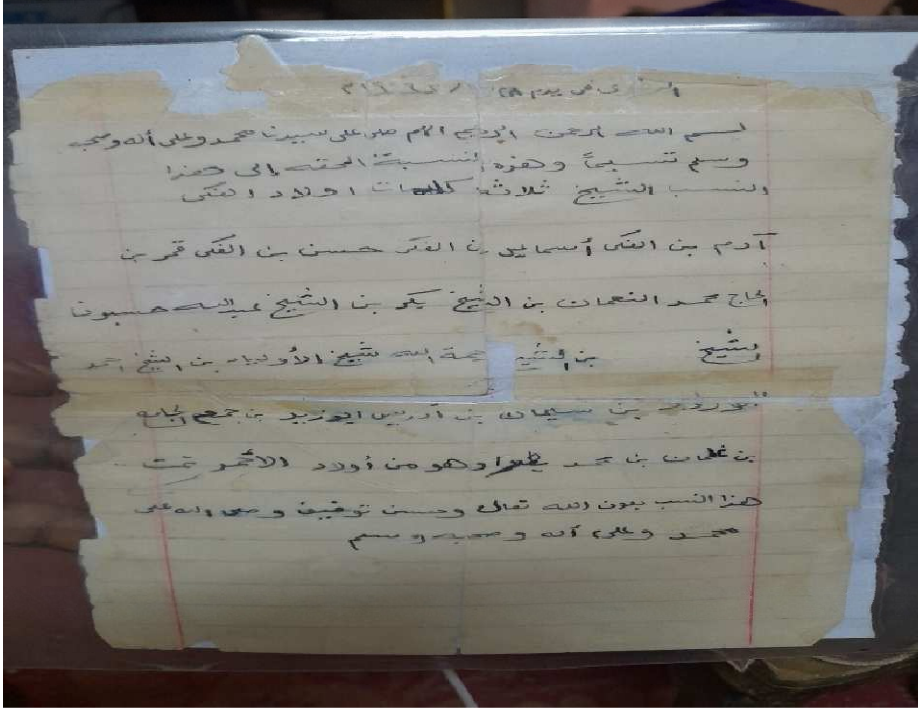 في يوم
بسم الله الرحمن الرحيم اللهم صلى على سيدنا محمد وعلى أله وصحبه
وسلم تسبباً وهذه النسبة المحقه إلى هذا
النسب الشيخ ثلاثة اولاد الفكى
آدم بن الفكى أسماعيل بن الفكى حسن بن الفكى قمر بن
الحاج محمد النعمان بن الشيخ بكر بن الشيخ عبدالله حسبون
الشيخ بن الشيخ الله شيخ الأولياء بن الشيخ احمد
بن سليمان بن أدريس ابوزيد بن جميع
بن محمد وهو من أولاد الأحمر تمت
هذا النسب بعون الله تعالى وحسن توفيق وصلى الله على
محمد وعلى آله وصحبه وسلم